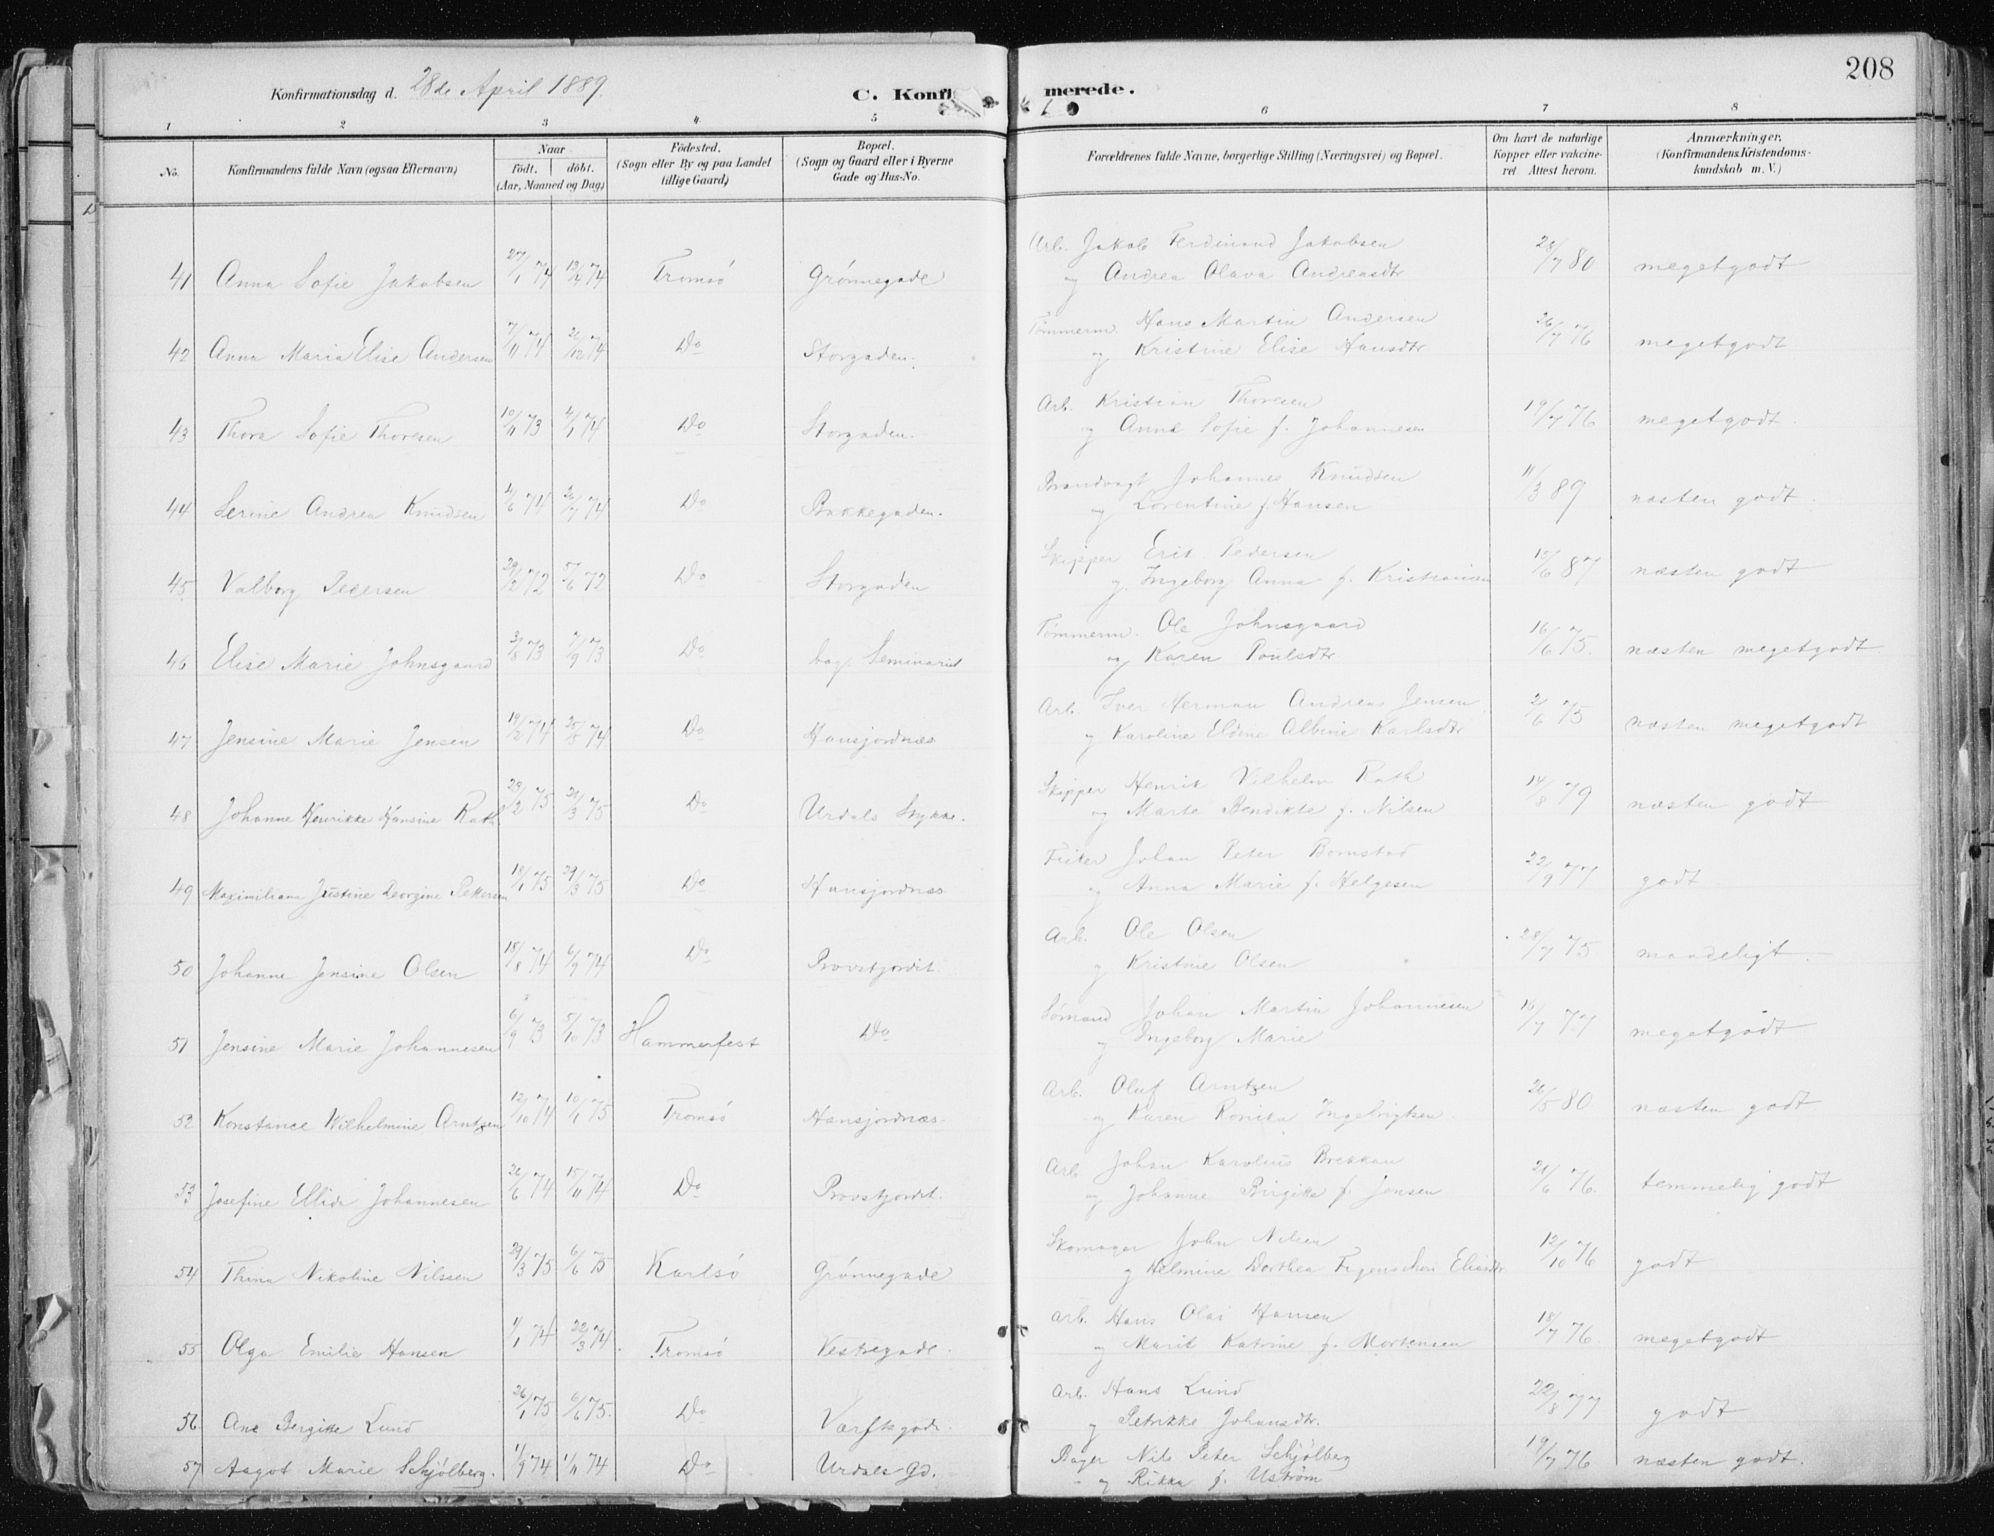 208
Konfirmationsdag d. 28de April 1889.
C. Konfi merede.
1 2 3 4 5 6 7 8
No. Konfirmandens fulde Navn (ogsaa Efternavn) Naar födt. döbt. (Aar, Maaned og Dag) Födested. (Sogn eller By og paa Landet tillige Gaard) Bopæl. (Sogn og Gaard eller i Byerne Gade og Hus-No. Forældrenes fulde Navne, borgerlige Stilling (Næringsvei) og Bopæl. Om havt de naturlige Kopper eller vakcineret Attest herom. Anmærkninger. (Konfirmandens Kristendomskundskab m. V.)
41 Anna Sofie Jakobsen 27/1 74 74 Tromsö Grönnegade Arb. Jakob Ferdinand Jakobsen og Andrea Olava Andreasdtr 28/7 80 megetgodt
42 Anna Maria Elise Andersen 7/11 74 21/12 74 Do Storgaden. Tömmerm. Hans Martin Andersen og Kristine Elise Hansdtr 26/7 76 megetgodt
43 Thora Sofie Thoresen 10/11 73 4/1 74 Do Storgaden. Arb. Kristian Thoresen og Anne Sofie f. Johannesen 19/7 76 megetgodt.
44 Serine Andrea Knudsen 4/6 74 26/7 74 Do Bakkegaden. Brandvagt Johannes Knudsen og Lorentine f. Hansen 11/3 89 næsten godt.
45 Valborg Pedersen 29/2 72 5/6 72 Do Storgaden Skipper Erik Pedersen og Ingeborg Anna f. Kristiansen 10/6 87 næsten godt
46 Elise Marie Johnsgaard 3/8 73 7/9 73 Do bag Seminariet Tömmerm. Ole Johnsgaard og Karen Poulsdtr 16/6 75. næsten megetgodt.
47 Jensine Marie Jensen 19/2 74 25/5 74 Do Hansjordnæs Arb. Iver Herman Andreas Jensen og Karoline Eldine Albine Karlsdtr 21/6 75 næsten megetgodt
48 Johanne Henrikke Hansine Rath 23/2 75 21/3 75 Do Urdals Stykke. Skipper Henrik Vilhelm Rath og Marte Bendikte f. Nilsen 14/8 79 næsten godt
49 Maximiliana Justine Georgine Pettersen 18/1 75 29/3 75 Do Hansjordnæs Johan Peter Bomstad og Anna Marie f. Helgesen 22/9 77 godt
50 Johanne Jensine Olsen 15/8 74 6/9 74 Do Provstjordet. Arb. Ole Olsen og Kristine Olsen 28/7 75. maadeligt.
51 Jensine Marie Johannesen 6/9 73 5/10 73 Hammerfest Do Sömand Johan Martin Johannesen og Ingeborg Marie 16/7 77 megetgodt
52 Konstance Wilhelmine Arntzen 12/10 74 10/1 75 Tromsö Hansjordnæs. Arb. Oluf Arntzen og Karen Ronica Ingebrigtsen 26/5 80 næsten godt
53 Josefine Ellida Johannesen 26/6 74 15/11 74 Do Provstjordet. Arb Johan Karolius Brekkan og Johanne Birgitte f. Jensen 21/6 76. temmelig godt
54 Thina Nikoline Nilssen 29/3 75 6/6 75 Karlsö Grönnegade Skomager John Nilsen og Helmine Dorthea Figenschou 12/10 76 godt
55 Olga Emilie Hansen 1/1 74 22/3 74 Tromsö Vestregade. Arb. Hans Olai Hansen og Marit Katrine f. Mortensen 18/7 76. megetgodt
56 Ane Bergitte Lund 26/1 75 6/6 75. Do Værftsgad. Arb. Hans Lund og Petrikke Johansdtr. 22/8 77 godt
57 Aagot Marie Schjölberg. 1/9 74 1/11 74 Do Urdals Gd. Bager Nils Peter Schjölberg og Rikka f. Uström 19/7 76 næsten godt.